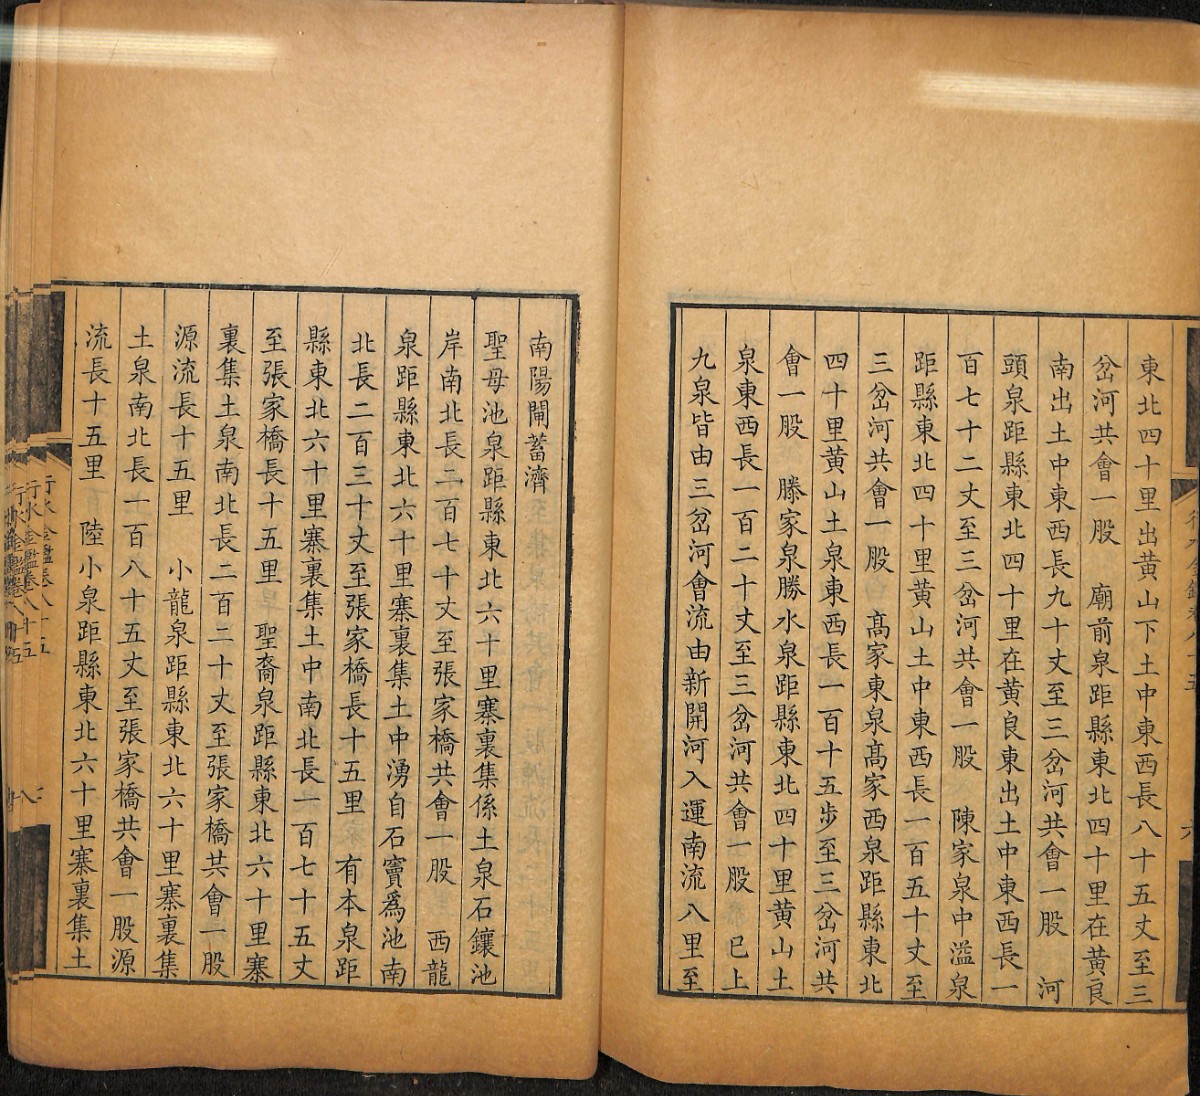 東北四十里出黄山下土中東西長八十五丈至三
岔河共會一股　廟前泉距縣東北四十里在黄良
南出土中東西長九十丈至三岔河共會一股　河
頭泉距縣東北四十里在黄良東出土中東西長一
百七十二丈至三岔河共會一股　陳家泉中溢泉
距縣東北四十里黄山土中東西長一百五十丈至
三岔河共會一股　髙家東泉髙家西泉距縣東北
四十里黄山土泉東西長一百十五步至三岔河共
會一股　滕家泉勝水泉距縣東北四十里黄山土
泉東西長一百二十丈至三岔河共會一股　已上
九泉皆由三岔河會流由新開河入運南流八里至
南陽閘蓄濟
聖母池泉距縣東北六十里寨裏集係土泉石鑲池
岸南北長二百七十丈至張家橋共會一股　西龍
泉距縣東北六十里寨裏集土中湧自石竇爲池南
北長二百三十丈至張家橋長十五里　有本泉距
縣東北六十里寨裏集土中南北長一百七十五丈
至張家橋長十五里　聖裔泉距縣東北六十里寨
裏集土泉南北長二百二十丈至張家橋共會一股
源流長十五里　小龍泉距縣東北六十里寨裏集
土泉南北長一百八十五丈至張家橋共會一股源
流長十五里　陸小泉距縣東北六十里寨裏集土
行水金鑑卷八十五
八